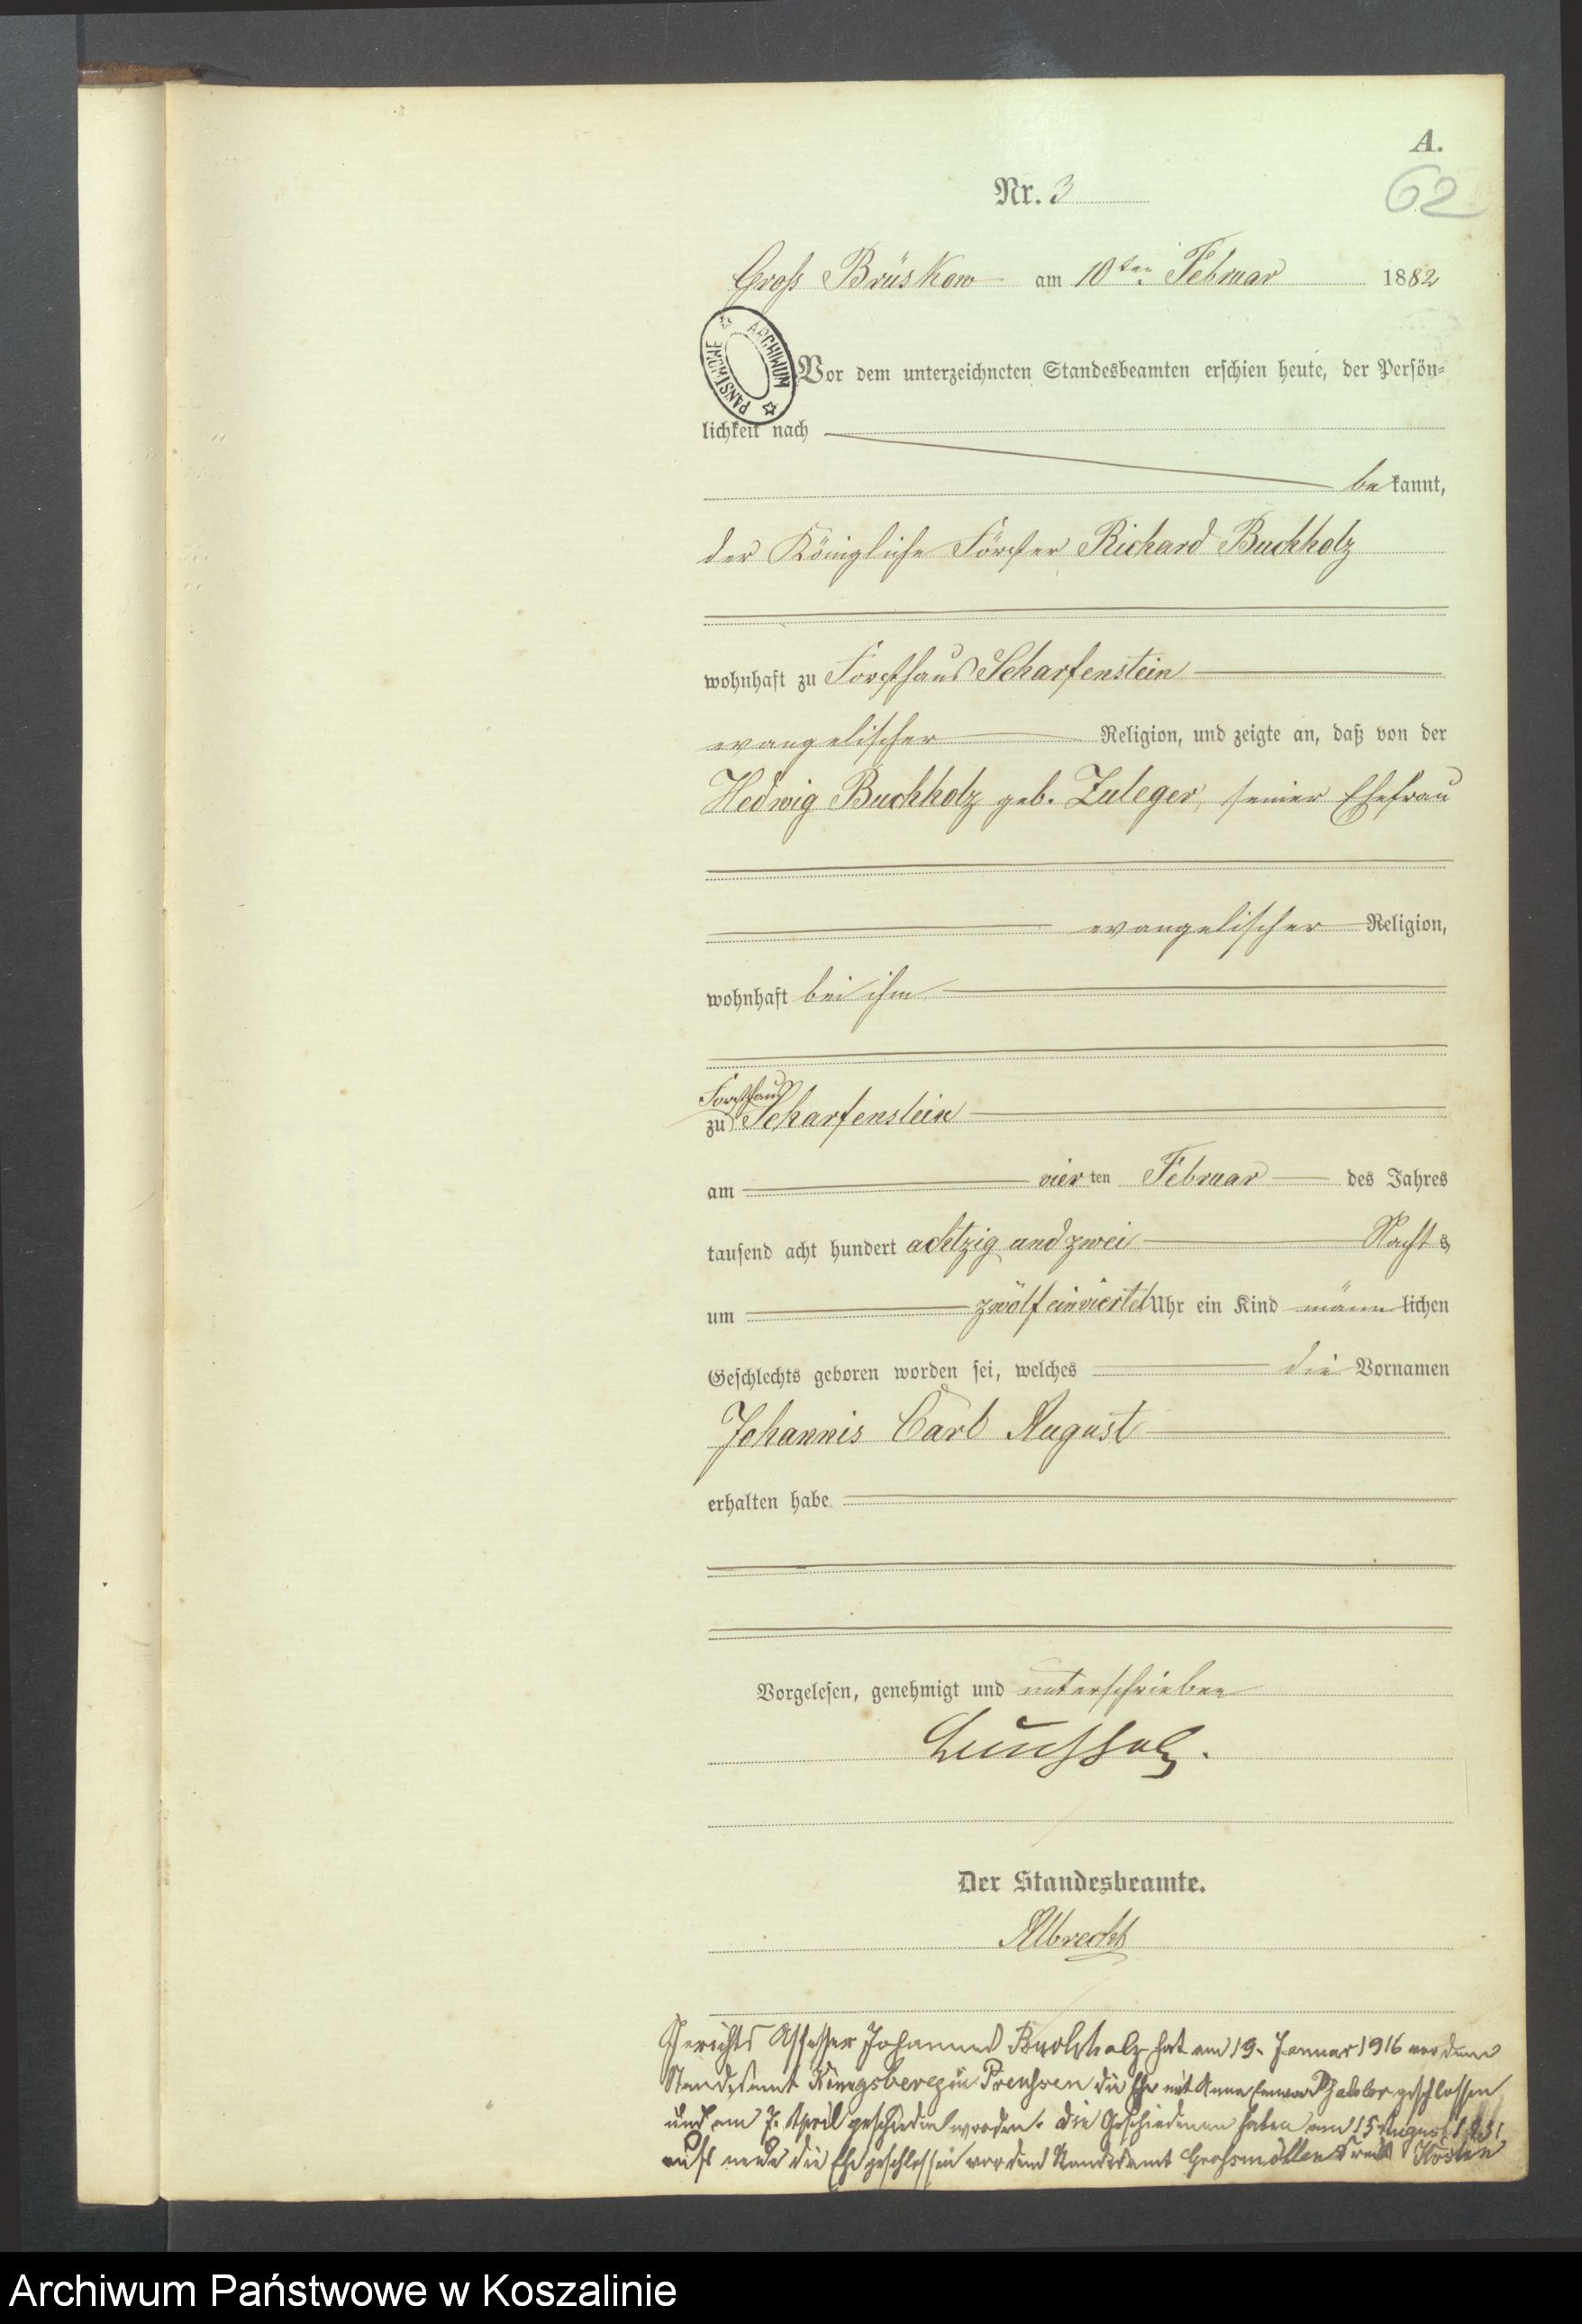 A.
Nr. 3
62
Groß Brüskow am 10ten Februar 1882
ARCHIWUM PAŃSTWOWE
Vor dem unterzeichneten Standesbeamten erschien heute, der Persön-
lichkeit nach
bekannt,
der Königliche Förster Richard Buchholz
wohnhaft zu Forsthaus Scharfenstein
evangelischer Religion, und zeigte an, daß von der
Hedwig Buchholz geb. Zuleger, seiner Ehefrau
evangelischer Religion,
wohnhaft bei ihm
Forsthaus
zu Scharfenstein
am vierten Februar des Jahres
tausend acht hundert achtzig und zwei Nachts
um zwölf einviertel Uhr ein Kind männlichen
Geschlechts geboren worden sei, welches die Vornamen
Johannis Carl August
erhalten habe
Vorgelesen, genehmigt und unterschrieben
Buchholz.
Der Standesbeamte.
Albrecht
Gerichts Assessor Johannes Buchholz hat am 19. Januar 1916 vor dem
Standesamt Königsberg in Preußen die Ehe mit Anna geschlossen
und am 7. April geschieden worden. Die Geschiedenen haben am 15 August
aufs neue die Ehe geschlossen vor dem Standesamt Grossmöllen Kreis Köslin
Archiwum Państwowe w Koszalinie